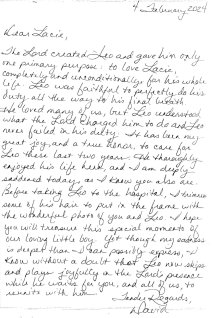 4 February 2024
Dear Lacie,
The Lord created Leo and gave him only
one primary purpose: to love Lacie,
completely and unconditionally for his whole
life. Leo was faithful to perfectly do his
duty, all the way to his final breath.
He loved many of us, but Leo understood
what the Lord charged him to do and Leo
never failed in his duty. It has been my
great joy, and a true honor, to care for
Leo these last two years. He thoroughly
enjoyed his life here, and I am deeply
saddened today, as I know you also are.
Before taking Leo to the hospital, I
some of his hair to put in the frame with
the wonderful photo of you and Leo. I hope
you will treasure this special moments of
our loving little boy. Yet though my sadness
is deeper than I can possibly express, I
know without a doubt that Leo now skips
and plays joyfully in the Lord's presence
while he waits for you, and all of us, to
reunite with him.
Regards,
David